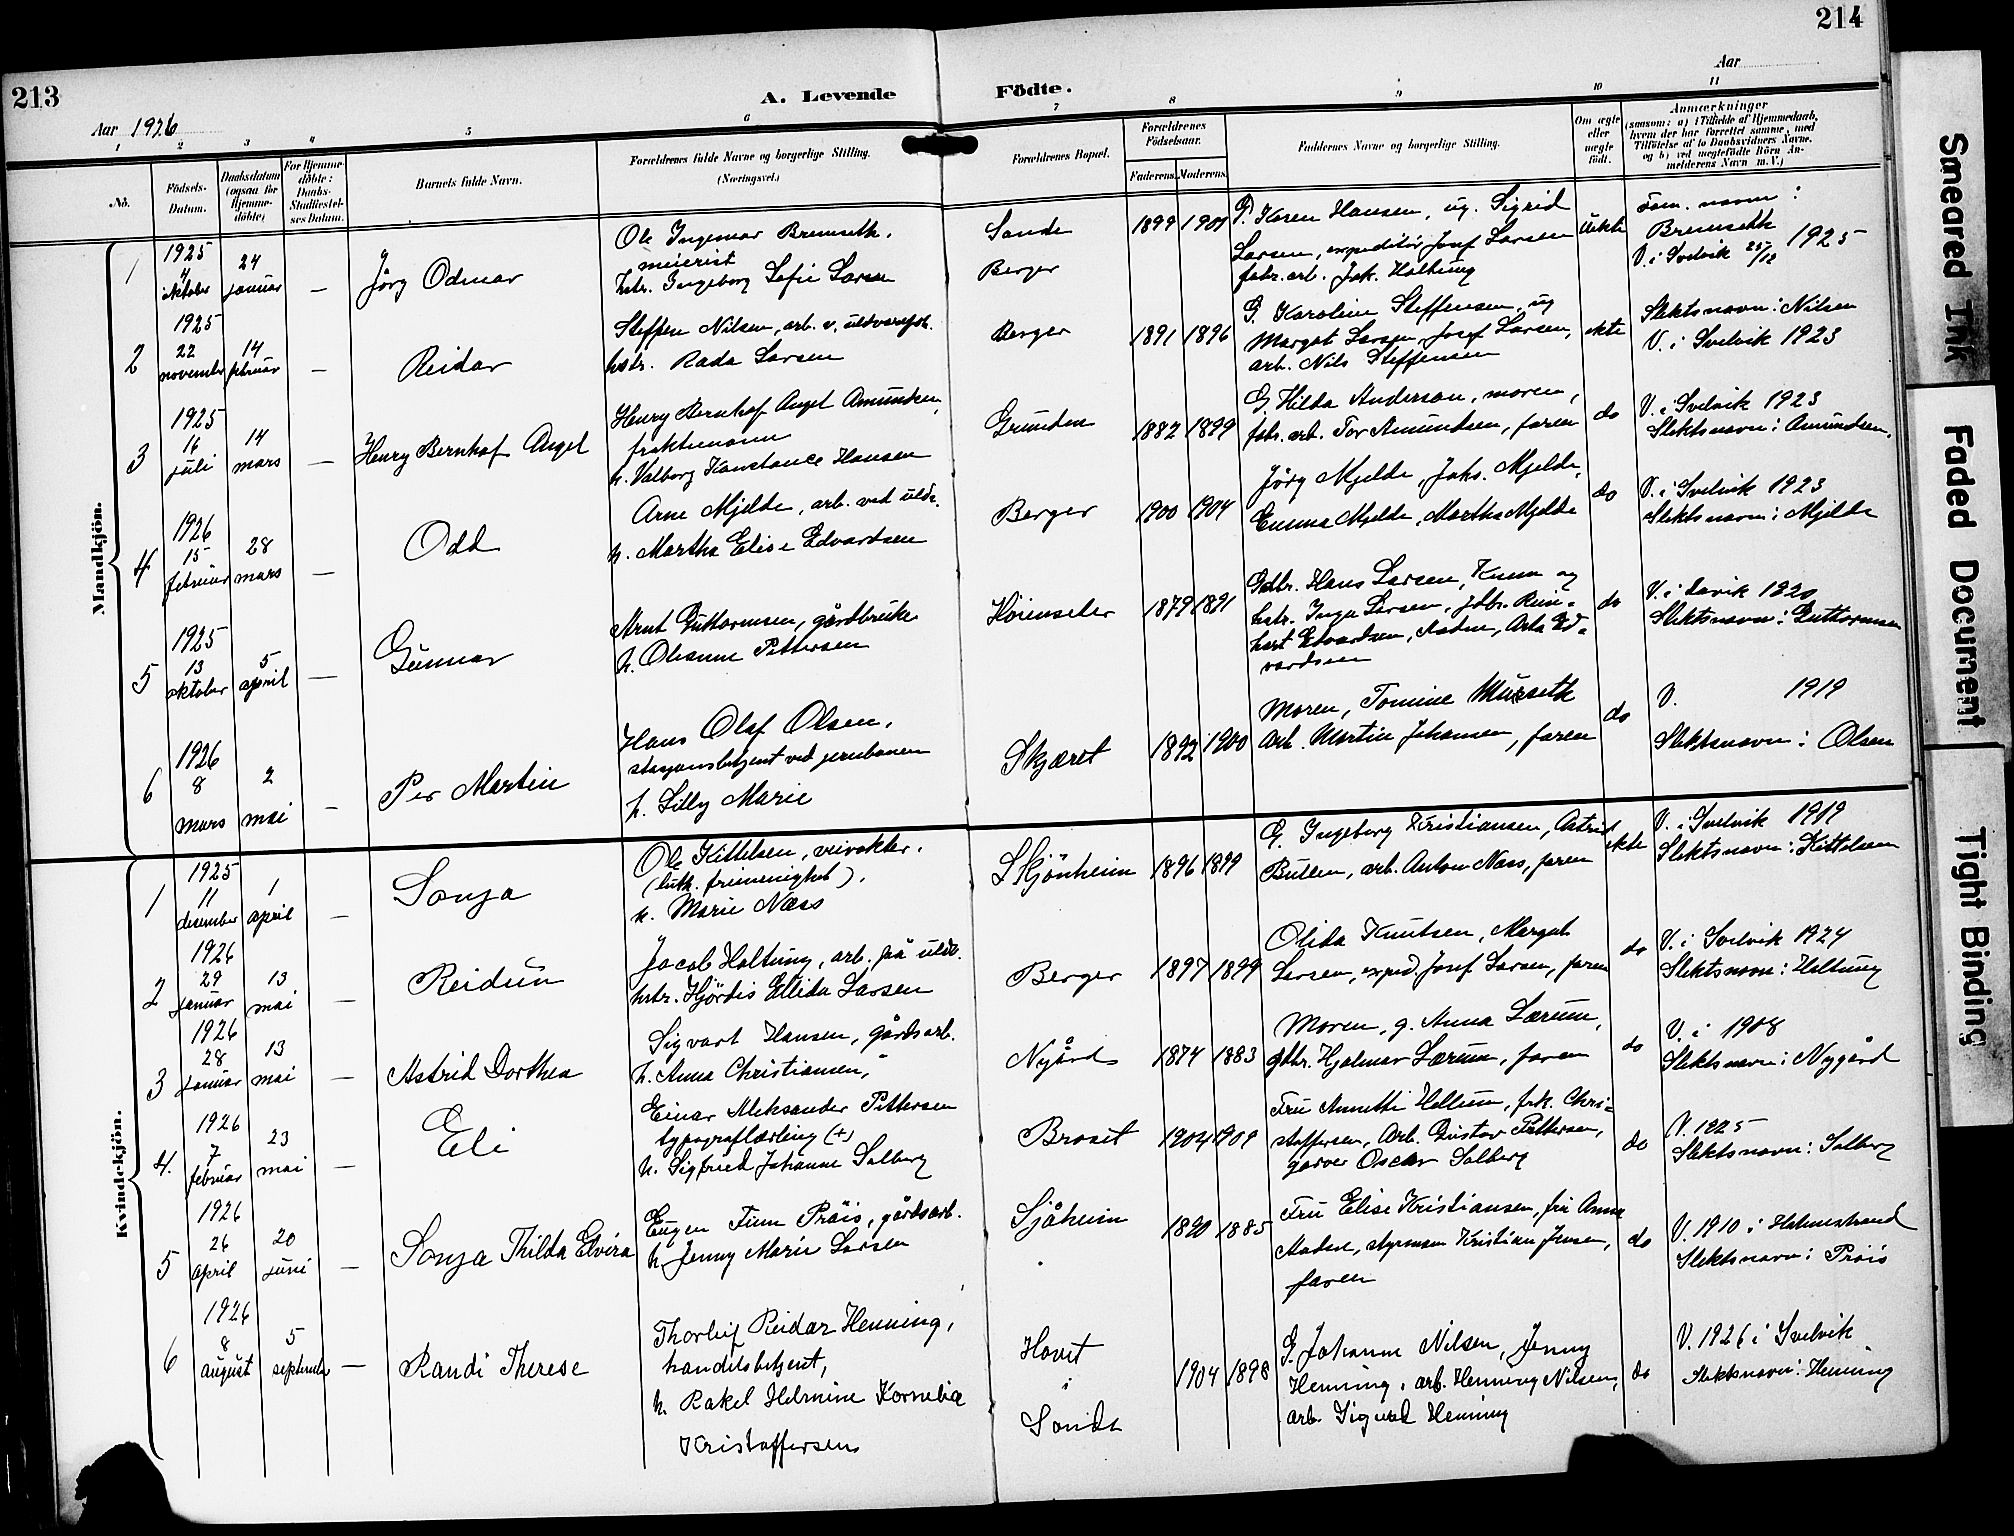 213
214
A. Levende Födte.
Aar 1926
Aar
1 2 3 4 5 6 7 8 9 10 11
No.
Födsels-Datum.
Daabsdatum (ogsaa for Hjemme-döbte)
For Hjemme-döbte: Daabs-Stadfæstel-ses Datum.
Barnets fulde Navn.
Forældrenes fulde Navne og borgerlige Stilling. (Næringsvei.)
Forældrenes Bopæl.
Forældrenes Födselsaar.
Faderens. Moderens.
Faddernes Navne og borgerlige Stilling.
Om ægte eller uægte födt.
Anmærkninger
(saasom: a) i Tilfælde af Hjemmedaab,
hvem der har forrettet samme, med
Tilföielse af to Daabsvidners Navne,
og b) ved uegtefödte Börn An-
melderens Navn m. V.)
Mandkjön.
1
1925
4 oktober
24 januar
—
Jörg Odmar
Ole Ingemar Bremseth,
meierist
hstr. Ingeborg Sofie Larsen
Sande
Berger
1899 1901
G. Karen Hansen, ug. Sigrid
Larsen, expeditör Josef Larsen
fabr. arb. Jak. Holtung
uekte
Fam. navn:
Bremseth
V. i Svelvik 25/12 1925
2
1925
22 november
14 februar
—
Reidar
Steffen Nilsen, arb. v. uldvarefabr.
hstr. Rada Larsen
Berger
1891 1896
G. Karoline Steffensen, ug
Margot Larsen, Josef Larsen,
arb. Nils Steffensen
ekte
Slektsnavn: Nilsen
V. i Svelvik 1923
3
1925
16 juli
14 mars
—
Henry Bernhof Angel
Henry Bernhof Angel Amundsen,
fraktemann
h. Valborg Konstance Hansen
Grunden
1882 1899
G. Hilda Anderson, moren,
fabr. arb. Tor Amundsen, faren
do
V. i Svelvik 1923
Slektsnavn: Amundsen.
4
1926
15 februar
28 mars
—
Odd
Arne Mjelde, arb. ved uldv.
h. Martha Elise Edvardsen
Berger
1900 1904
Jörg Mjelde, Johs. Mjelde,
Emma Mjelde, Martha Mjelde
do
V. i Svelvik 1923
Slektsnavn: Mjelde
5
1925
13 oktober
5 april
—
Gunnar
Arnt Guttormsen, gårdbruker
h. Oleanne Pettersen
Hörensæter
1879 1891
Gdbr. Hans Larsen, Knem og
hstr. Inga Larsen, fdbr. Rein-
hart Edvardsen, Aadne, Asta Ed-
vardsen
do
V. i Lavik 1920
Slektsnavn: Guttormsen
6
1926
8 mars
2 mai
—
Per Martin
Hans Olaf Olsen,
stasjonsbetjent ved jernbanen
h. Lilly Marie
Skjæret
1892 1900
Moren, Tomine Murseth
Arb. Martin Johansen, faren
do
V. 1919
Slektsnavn: Olsen
Kvindekjön.
1
1925
11 desember
1 april
—
Sonja
Ole Kittelsen, veivokter,
(luth. frimenighet),
h. Marie Næss
Skjönheim
1896 1899
G. Ingeborg Kristiansen, Astrid
Bullen, arb. Anton Næss, faren
ekte
V. i Svelvik 1919
Slektsnavn: Kittelsen
2
1926
29 januar
13 mai
—
Reidun
Jacob Holtung, arb. på uldv.
hstr. Hjördis Ellida Larsen
Berger
1897 1899
Olida Knutsen, Margot
Larsen, exped. Josef Larsen, faren
do
V. i Svelvik 1924
Slektsnavn: Holtung
3
1926
28 januar
13 mai
—
Astrid Dorthea
Sigvart Hansen, gårdsarb.
h. Anna Christiansen,
Nygård
1874 1883
Moren, g. Anna Lærum,
gdbr. Hjalmar Lærum, faren
do
V. i 1908
Slektsnavn: Nygård
4.
1926
7 februar
23 mai
—
Eli
Einar Aleksander Pettersen
typograflærling (+)
h. Sigfried Johanne Solberg
Bråset
1904 1909
Fru Annetti Hellum, frk. Chri-
stoffersen, Arb. Gustav Pettersen,
garver Oscar Solberg
do
V. 1925
Slektsnavn: Solberg
5
1926
26 april
20 juni
—
Sonja Thilda Elvira
Eugen Finn Pröis, gårdsarb.
h. Jenny Marie Larsen
Sjåheim
1890 1885
Fru Elise Kristiansen, fru Anna
Aadne, styrmann Kristian Jensen,
faren
do
V. 1910 i Holmestrand
Slektsnavn: Pröis
6
1926
8 august
5 september
—
Randi Therese
Thorleif Reidar Henning,
handelsbetjent,
h. Rakel Helmine Kornelia
Kristoffersen
Hovet
i
Sande
1904 1898
G. Johanne Nilsen, Jenny
Henning, arb. Henning Nilsen,
arb. Sigurd Henning
do
V. 1926 i Svelvik
Slektsnavn: Henning
Smeared Ink
Faded Document
Tight Binding